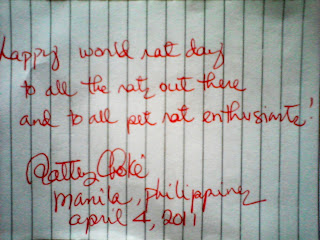 happy world rat day
to all the ratz out there
and to all pet rat enthusiasts!
Rattey Choké
manila, philippines
april 4, 2011